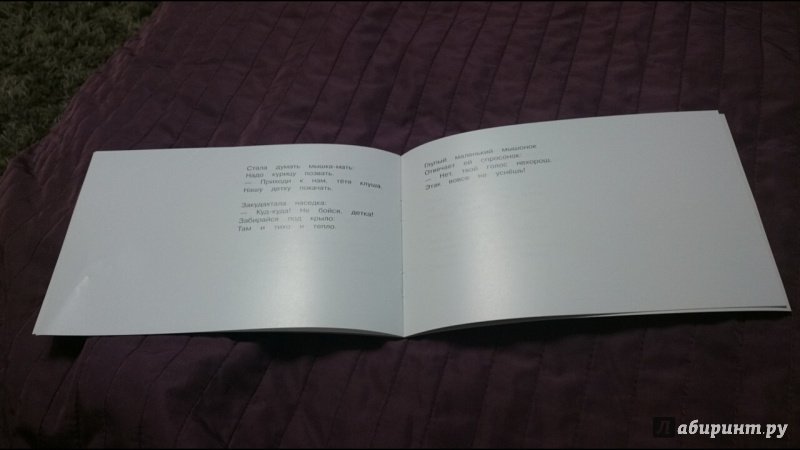 Стала думать мышка-мать:
Надо курицу позвать.
— Приходи к нам, тетя клуша,
Нашу детку покачать.
Закудахтала наседка:
— Куд-куда! Не бойся, детка!
Забирайся под крыло:
Там и тихо и тепло.
Глупый маленький мышонок
Отвечает ей спросонок:
— Нет, твой голос нехорош.
Этак вовсе не уснёшь!
Лабиринт.ру